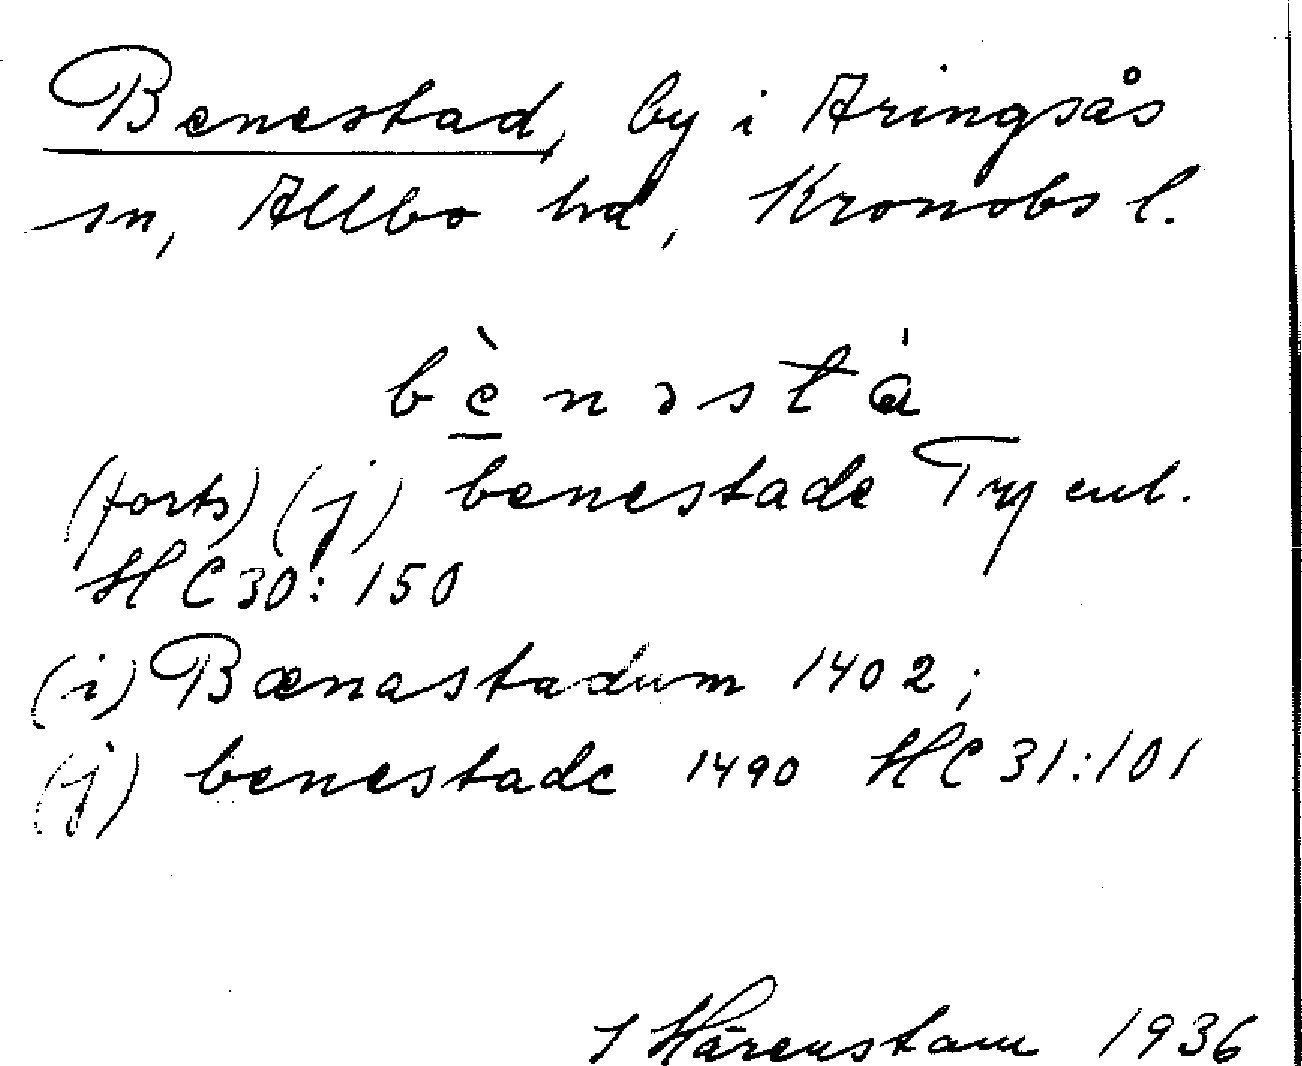 Benestad, by i Aringsås
sn, Allbo hd, Kronobs l.
bè̱nəstá
(forts) (j) benestade Try enl.
HC 30: 150
(i) Bænastadum 1402;
(j) benestade 1490 HC 31:101
J Härenstam 1936